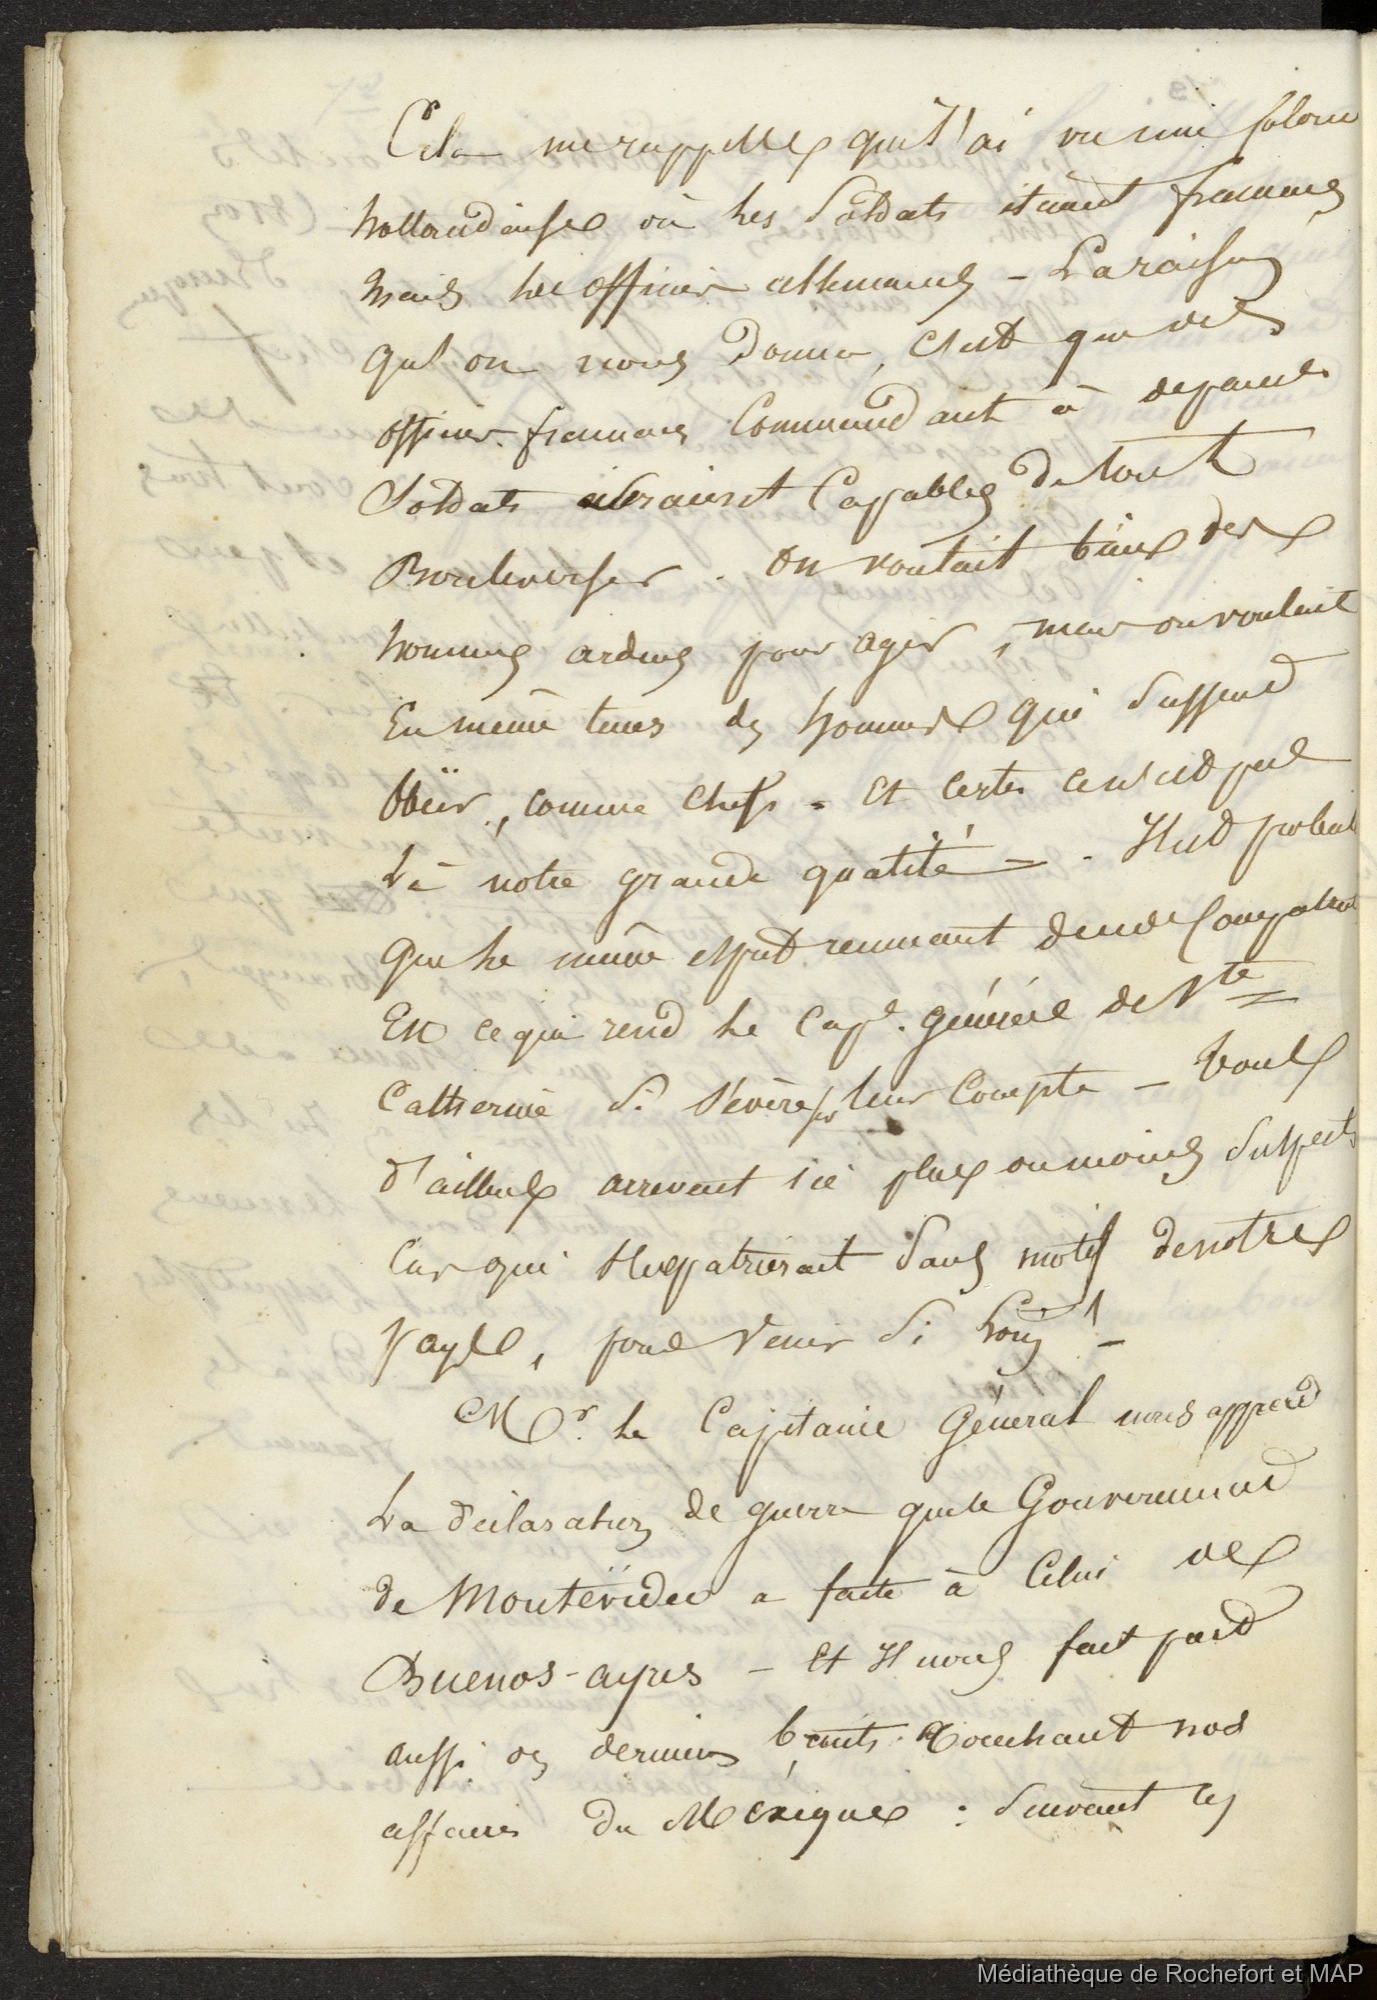 Cela me rappelle que j'ai vu une colonie
hollandaise où les Soldats étaient français
mais les officiers allemands - La raison
qu'on nous donna, c'est que des
officiers français Commandant à de pareils
Soldats seraient Capables de tout
Bouleverser. On voulait bien des
hommes ardens pour agir, mais on voulait
En même tems des hommes qui Sussent
Obéïr, comme chefs - Et certes ce n'est pas
Là notre grande qualité - . Il est probable
que le même esprit remuant de nos Compatriotes
Est ce qui rend le Cape. général de Ste
Catherine Si Sévère pr leur Compte - tous
d'ailleurs arrivent ici plus ou moins Suspects
Car qui s'expatrierait Sans motif de notre
pays, pour venir Si Loin!
Mr. le Capitaine Général nous apprend
La déclaration de guerre que le Gouvernement
de Montévideo a faite à Celui de
Buenos-ayres - Et Il nous fait part
aussi des derniers bruits touchant nos
affaires du Mexique : Suivant ces
Médiathèque de Rochefort et MAP